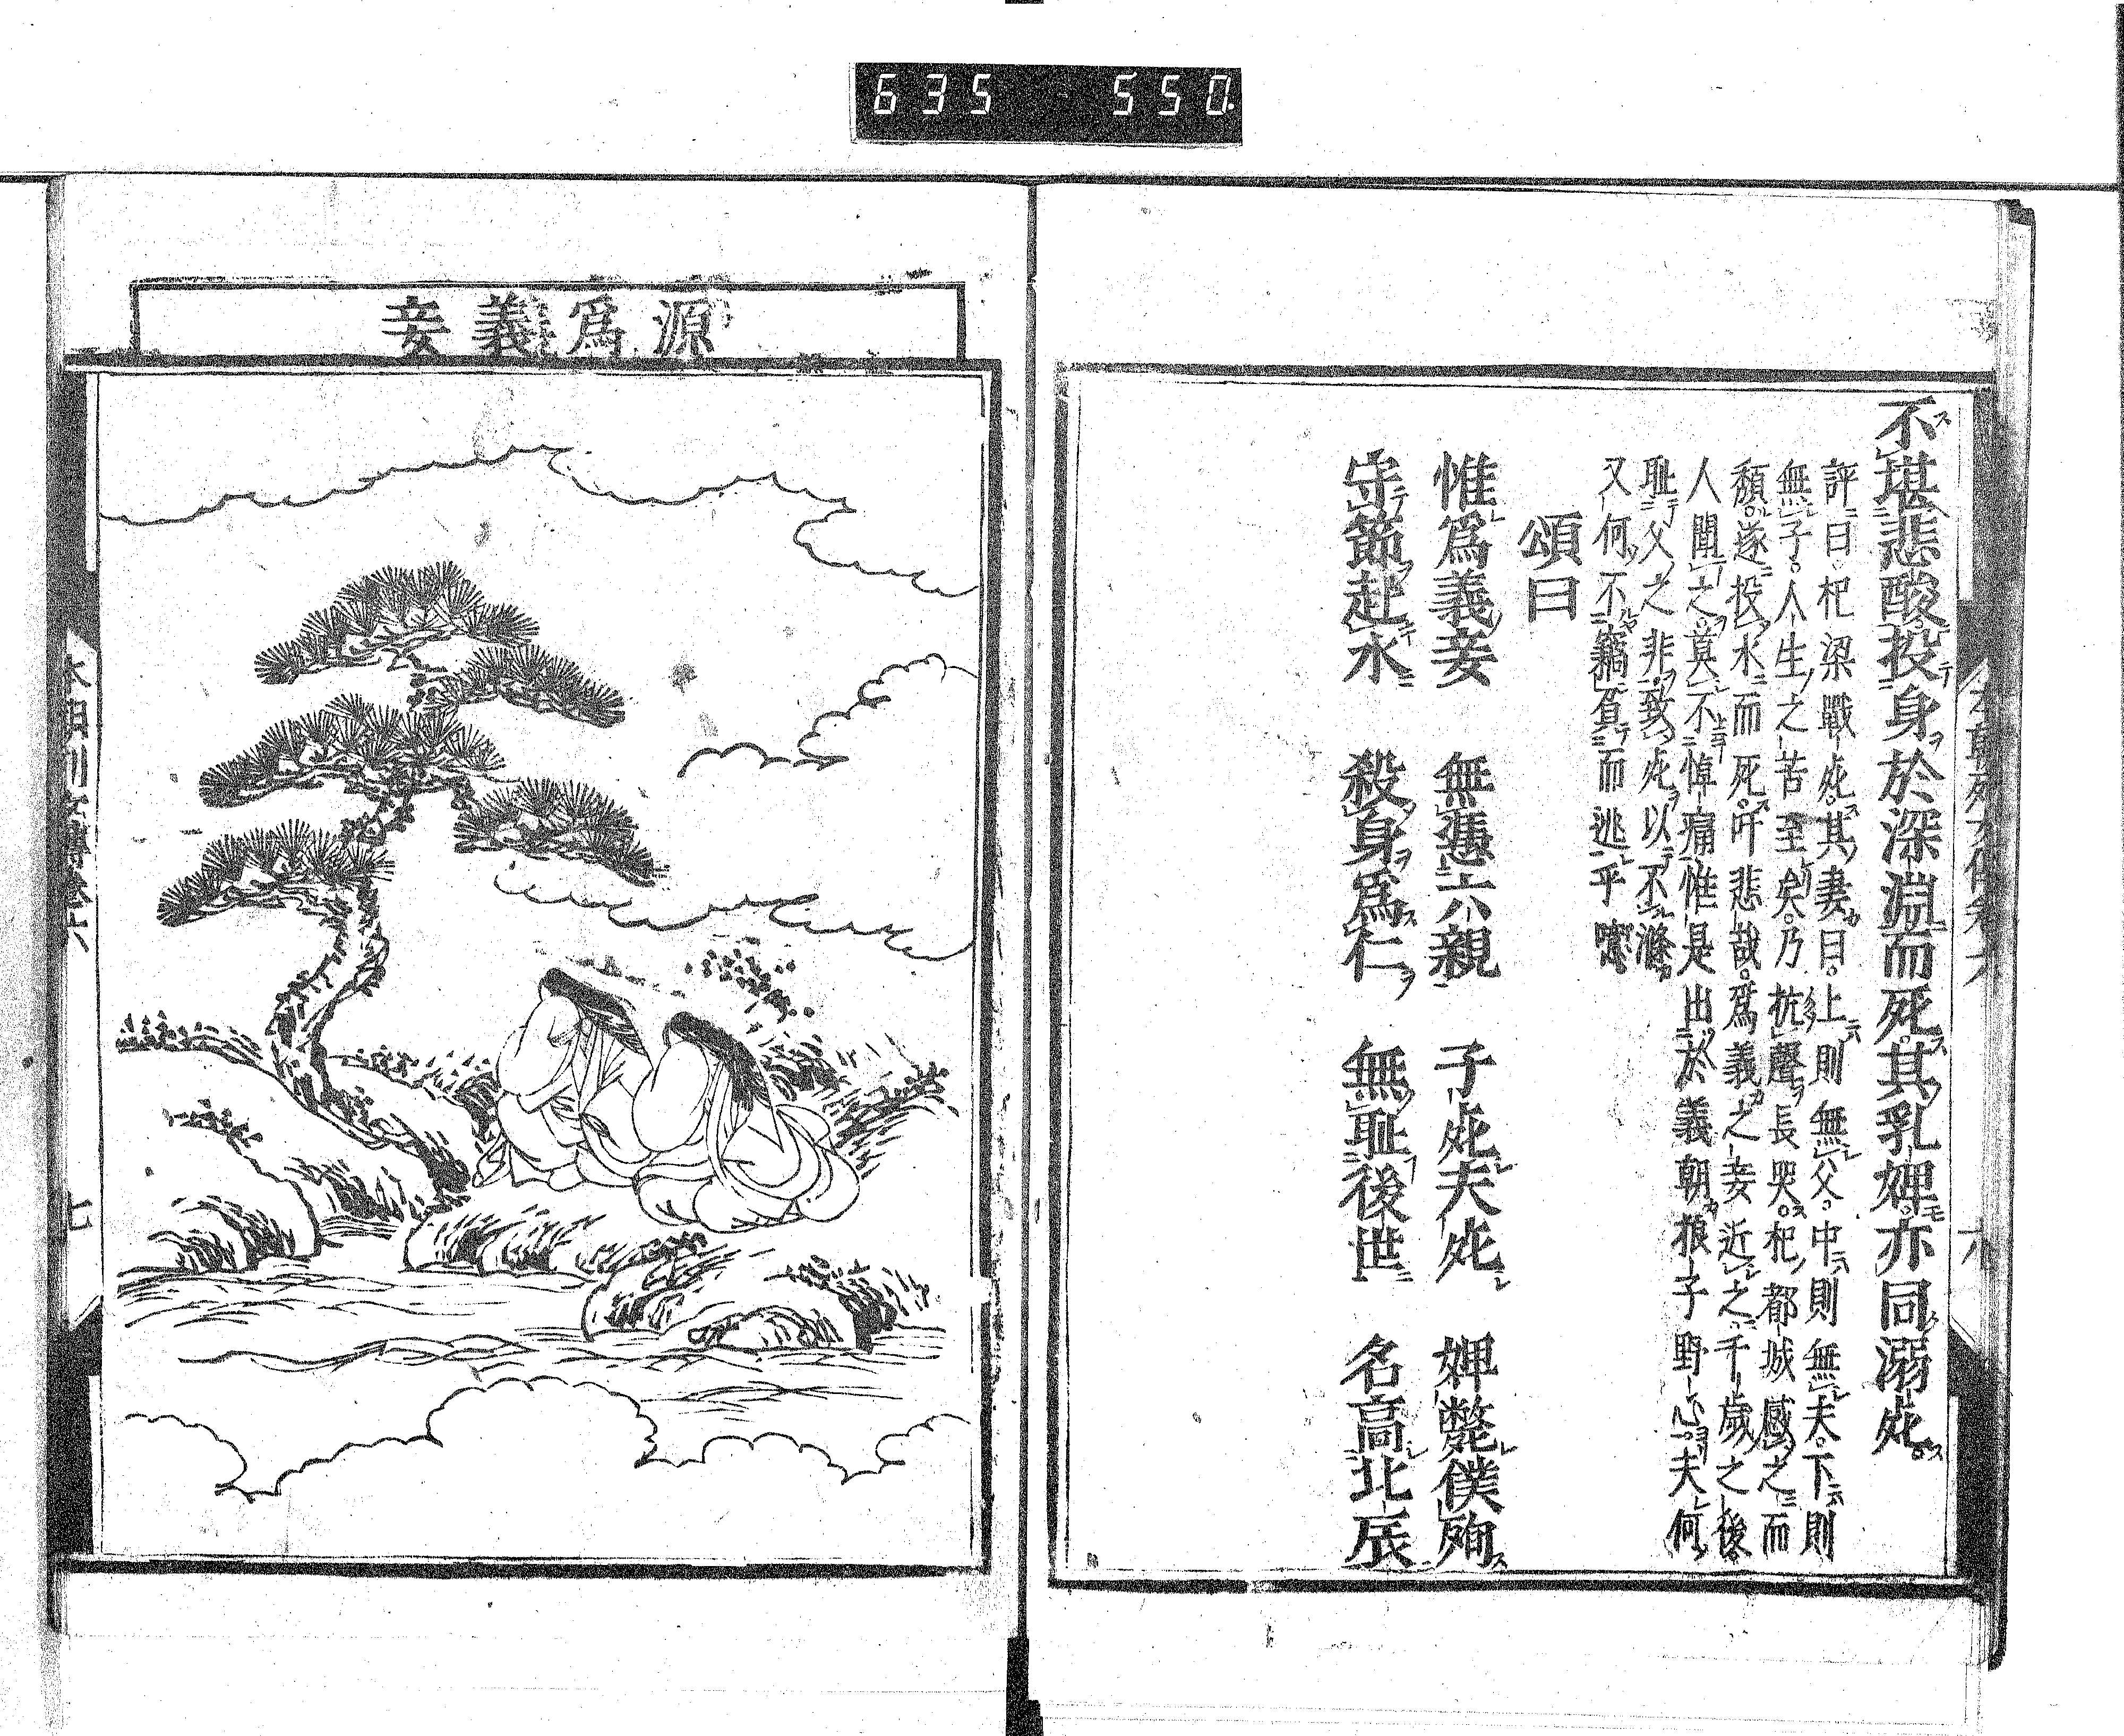 635 550.
不堪悲酸投身於深淵而死其乳婢亦同溺死
評曰杞梁戰死其妻曰上則無父中則無夫下則
無子人生之苦至矣乃抗聲長哭杞都城感之而
頽遂投水而死吁悲哉爲義之妾近之千歲之後
人聞之莫不悼痛惟是出於義朝狼子野心夫何
耻父之非致死以不滌
又何不竊負而逃乎噫
頌曰
惟爲義妾 無憑六親 子死夫死 婢斃僕殉
守節赴水 殺身爲仁 無耻後世 名高北辰
六
源爲義妾
七